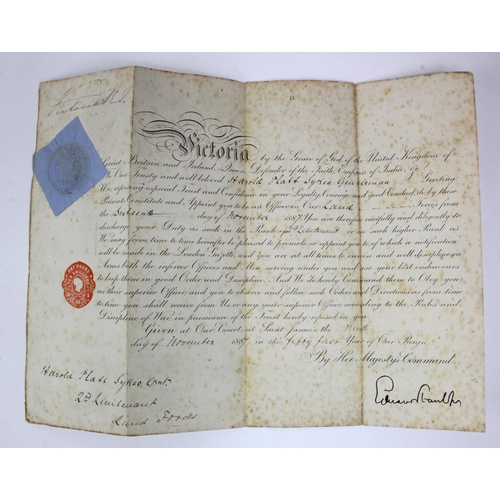 Victoria R.I.
Victoria by the Grace of God, of the United Kingdom of
Great Britain and Ireland, Queen, Defender of the Faith, Empress of India, &c.
To Our Trusty and well beloved Harold Platt Sykes Gentleman Greeting
We, reposing especial Trust and Confidence in your Loyalty, Courage, and good Conduct, do by these
Presents Constitute and Appoint you to be an Officer in Our Land Forces from
the Sixteenth day of November 1887. You are therefore carefully and diligently to
discharge your Duty as such in the Rank of 2nd Lieutenant or in such higher Rank as
We may from time to time hereafter be pleased to promote or appoint you to, of which a notification
will be made in the London Gazette, and you are at all times to exercise and well discipline in
Arms both the inferior Officers and Men serving under you and use your best endeavours
to keep them in good Order and Discipline. And We do hereby Command them to Obey you
as their superior Officer, and you to observe and follow such Orders and Directions as from time
to time you shall receive from Us, or any your superior Officer, according to the Rules and
Discipline of War, in pursuance of the Trust hereby reposed in you.
Given at Our Court, at Saint James's, the Ninth
day of November 1887, in the fifty first Year of Our Reign.
By Her Majesty's Command,
Harold Platt Sykes, Gent.
2nd Lieutenant
Land Forces